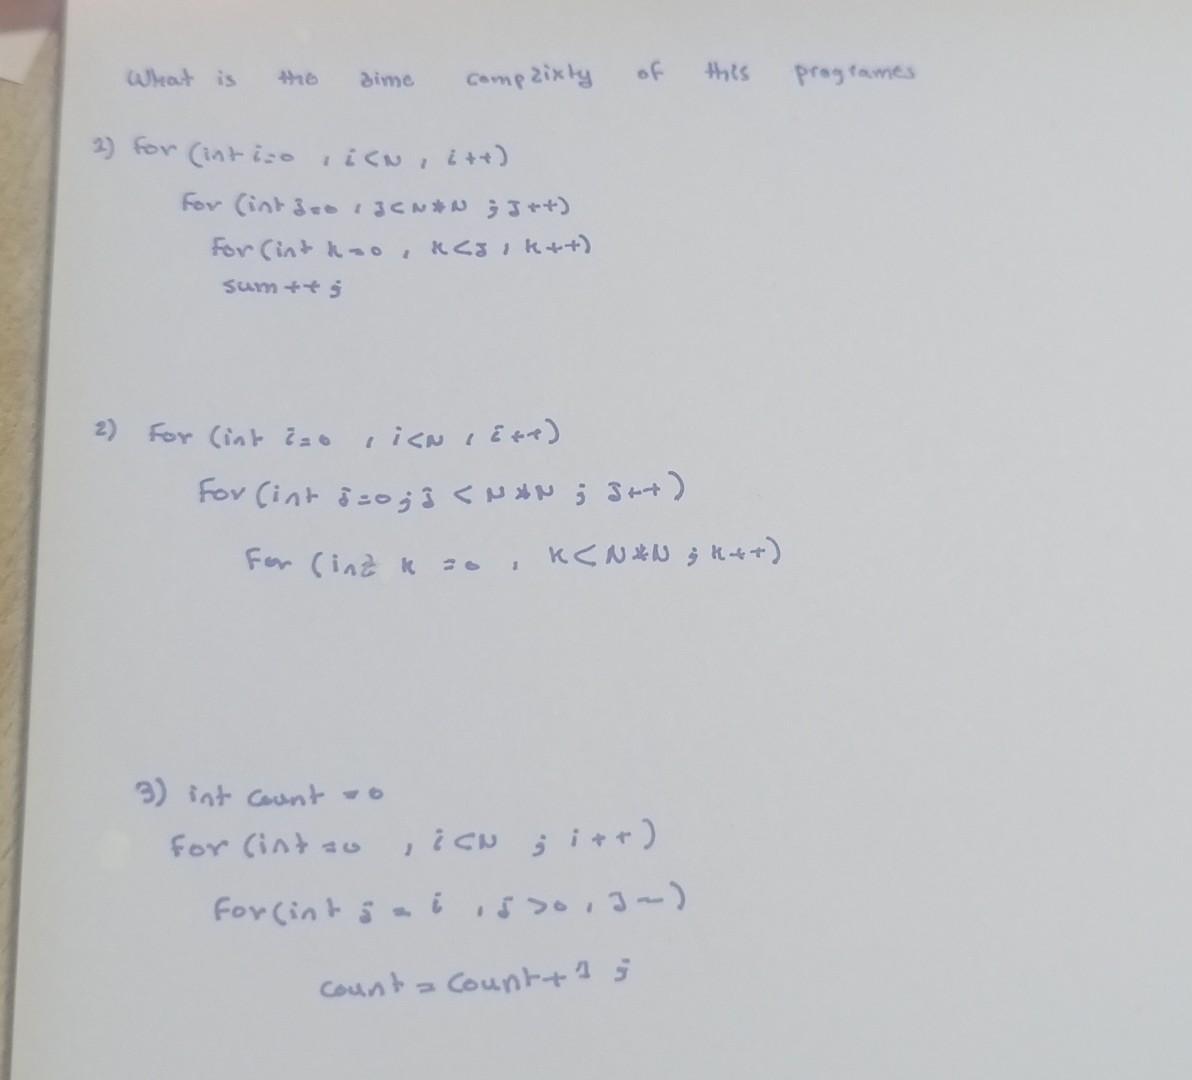 What is the time complixty of this programes
1) for (int i=0 , i<N , i++)
For (int j=0 , j<N*N ; j++)
For (int k=0 , k<j , k++)
sum++ ;
2) For (int i=0 , i<N , i++)
For (int j=0 ; j < N*N ; j++)
For (int k =0 , k<N*N ; k++)
3) int count =0
For (int =0 , i<N ; i++)
For(int j = i , j >0 , j--)
count = count+1 ;